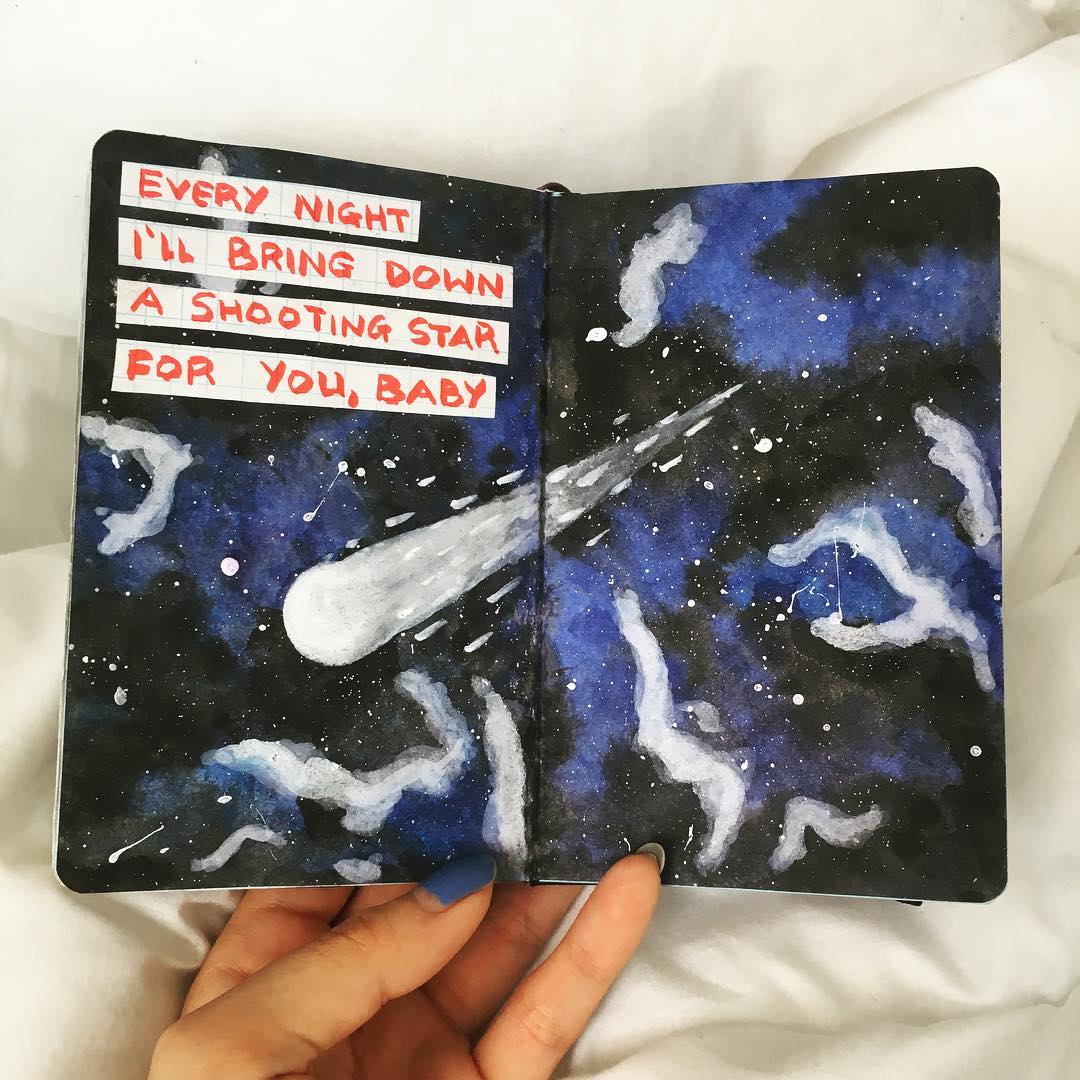 EVERY NIGHT
I'LL BRING DOWN
A SHOOTING STAR
FOR YOU, BABY